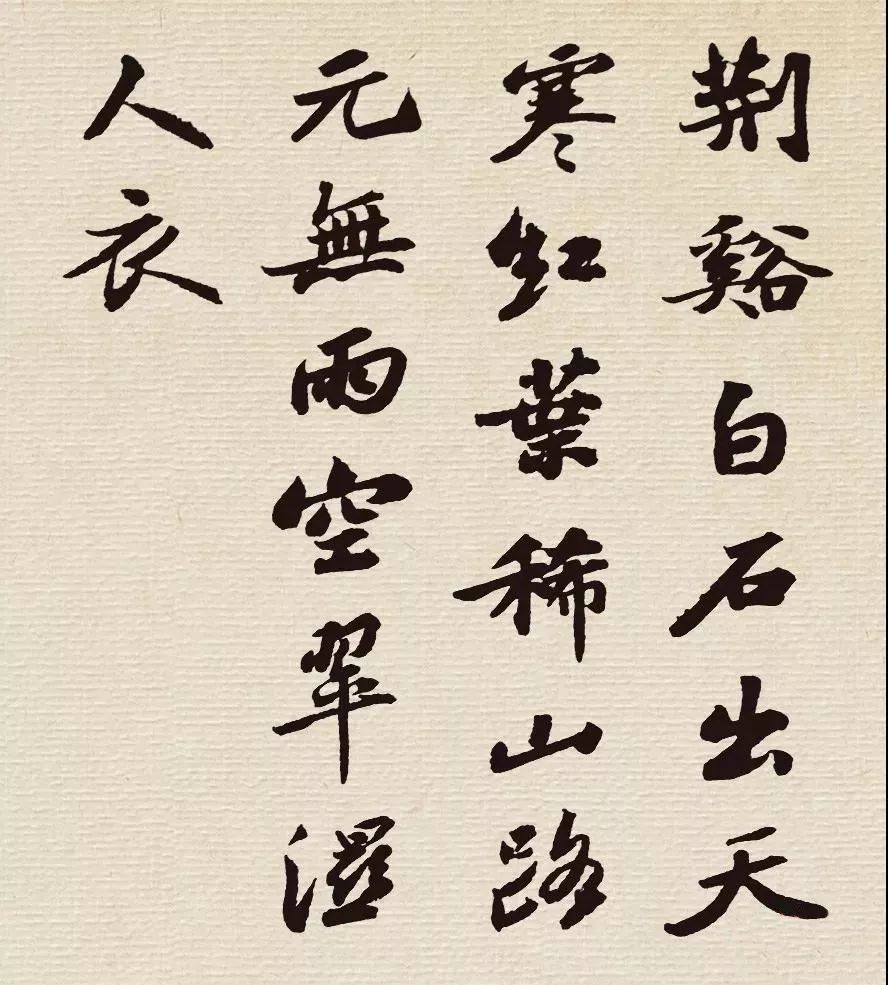 荆谿白石出天
寒紅葉稀山路
元無雨空翠濕
人衣